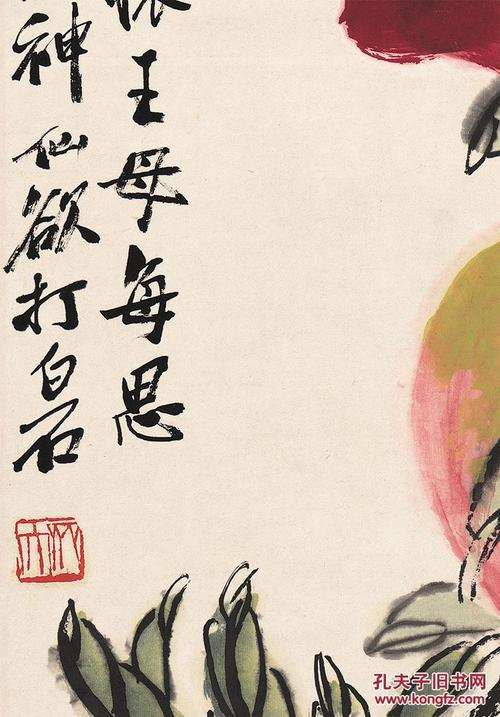 王母每思
神仙欲打白石
孔夫子旧书网
www.kongfz.com